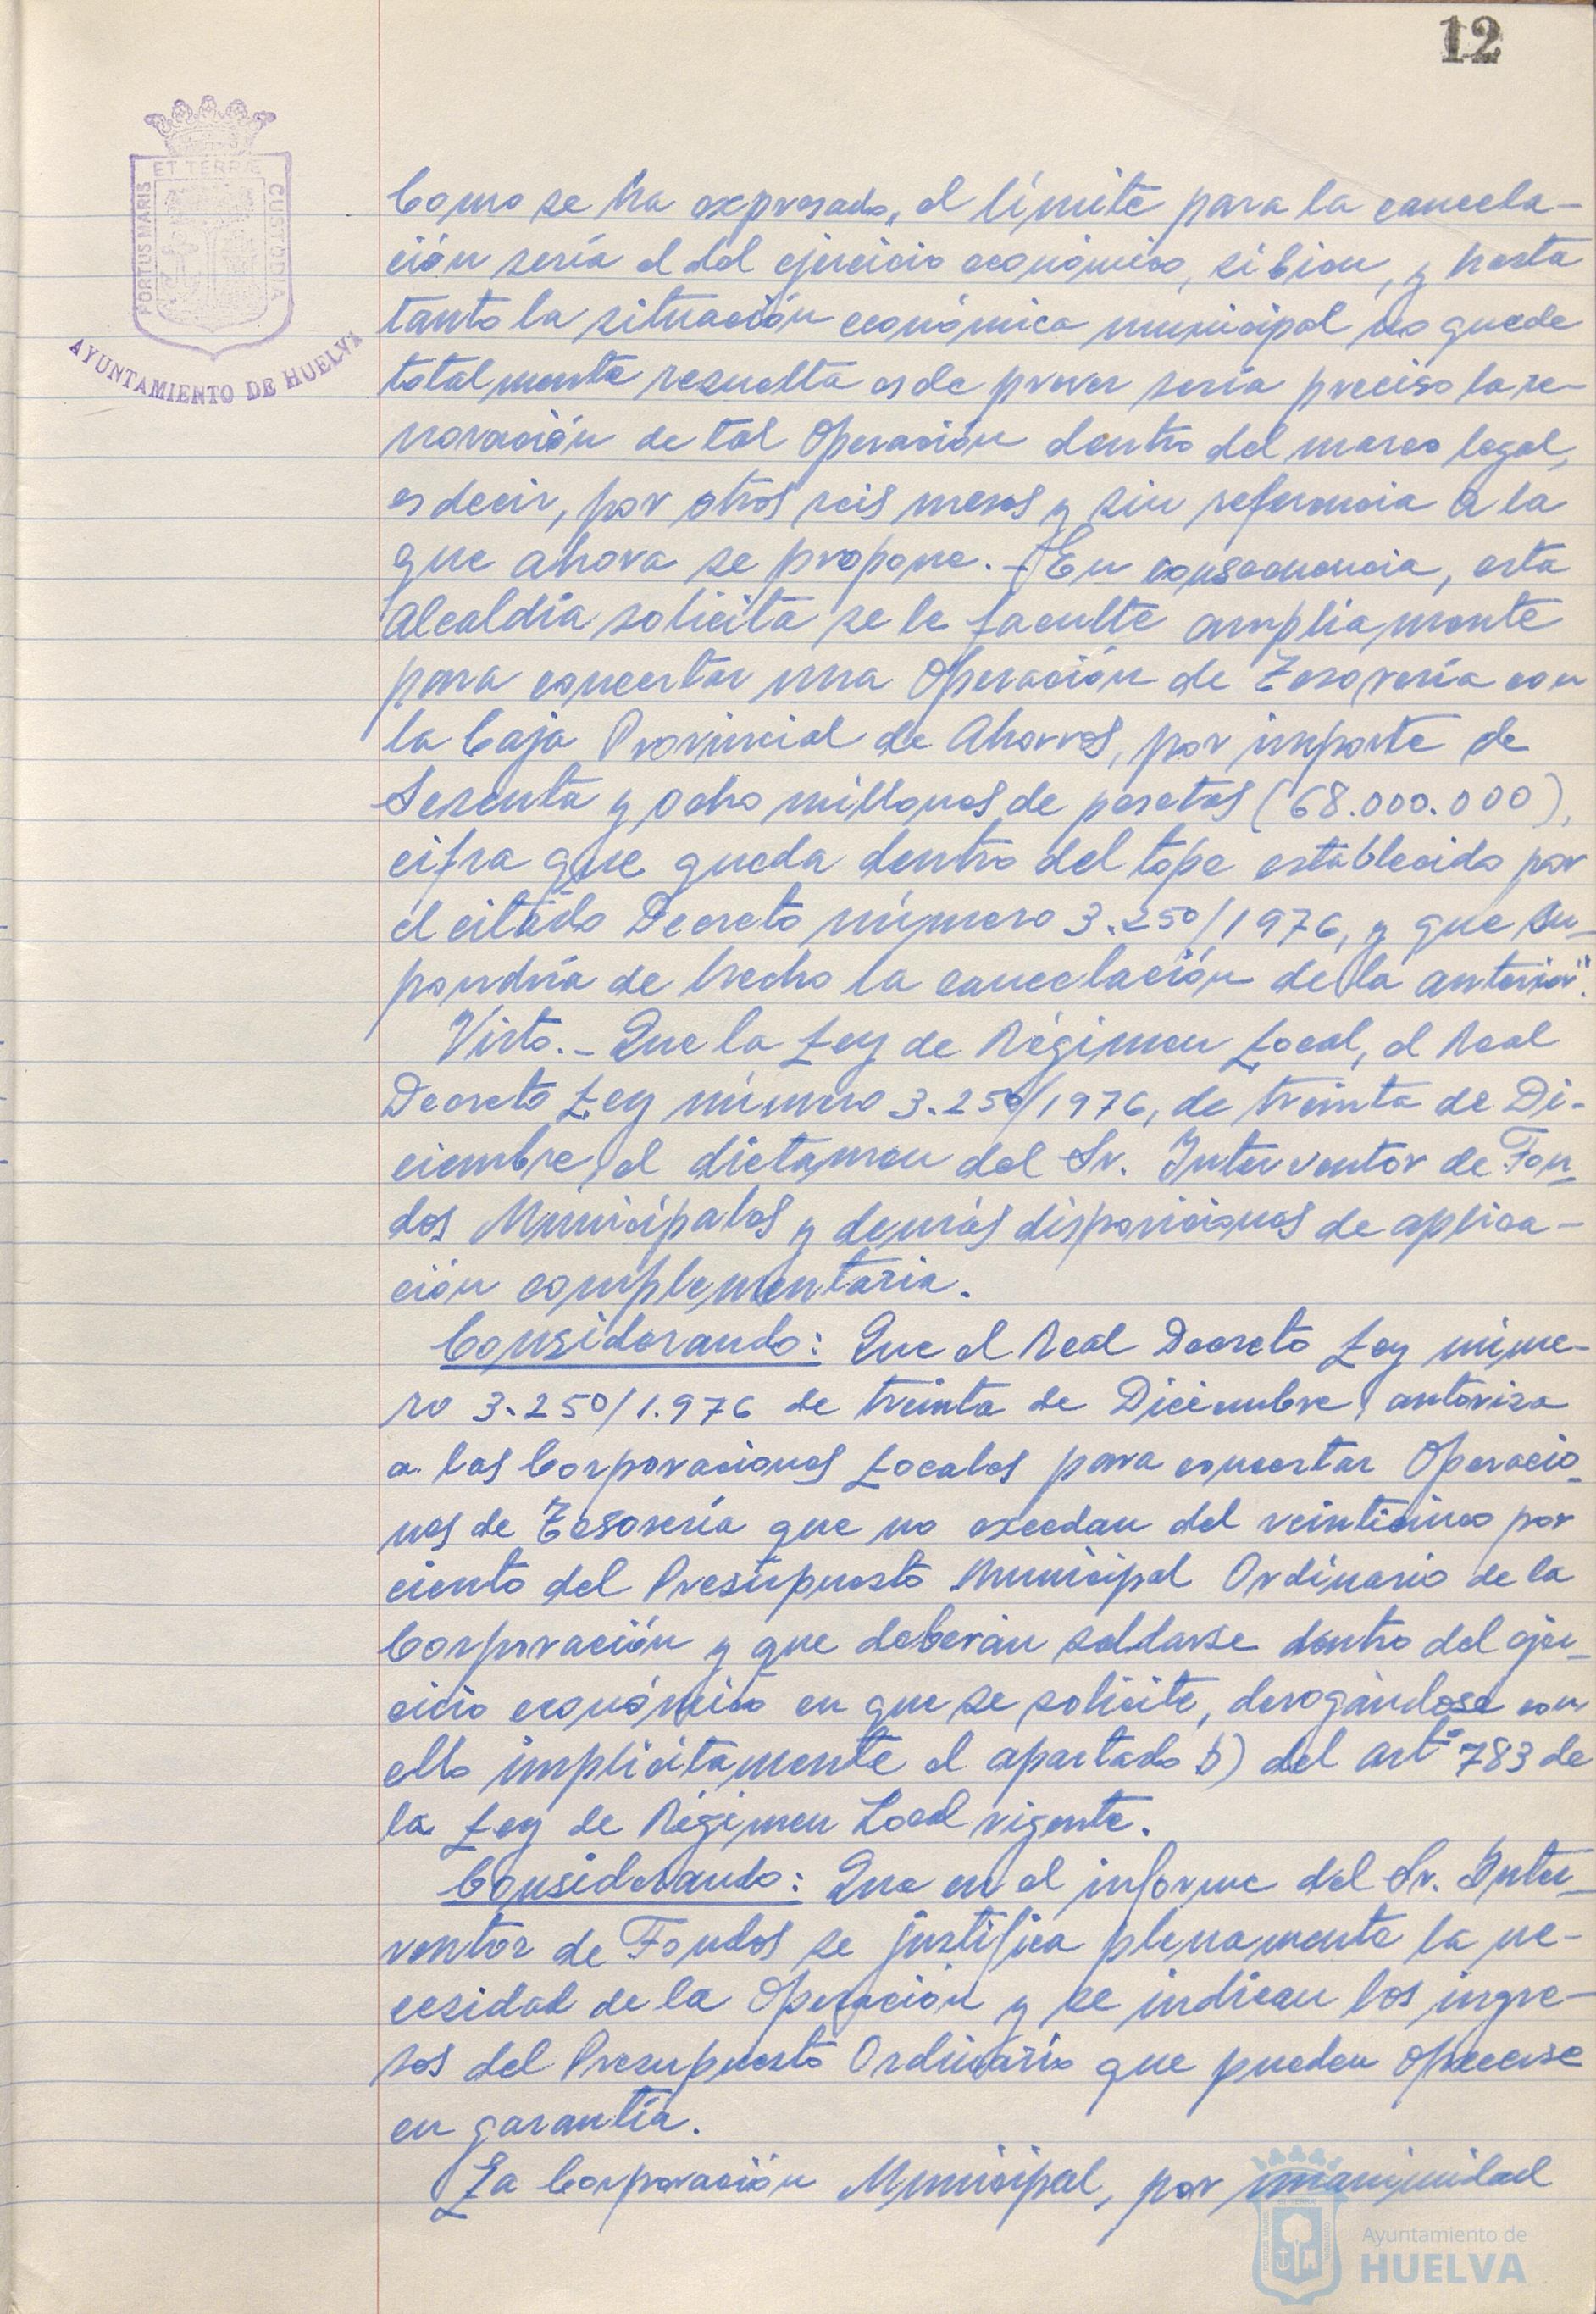 12
ET TERRÆ
PORTUS MARIS
CUSTODIA
AYUNTAMIENTO DE HUELVA
Como se ha expresado, el límite para la cancela-
ción sería el del ejercicio económico, si bien, y hasta
tanto la situación económica municipal no quede
totalmente resuelta es de prever sería preciso la re-
novación de tal Operación dentro del marco legal,
es decir, por otros seis meses y sin referencia a la
que ahora se propone.- En consecuencia, esta
Alcaldía solicita se le faculte ampliamente
para concertar una Operación de Tesorería con
la Caja Provincial de Ahorros, por importe de
Sesenta y ocho millones de pesetas (68.000.000),
cifra que queda dentro del tope establecido por
el citado Decreto número 3.250/1976, y que su-
pondría de hecho la cancelación de la anterior".
Visto.- Que la Ley de Régimen Local, el Real
Decreto Ley número 3.250/1976, de treinta de Di-
ciembre, el dictamen del Sr. Interventor de Fon-
dos Municipales y demás disposiciones de aplica-
ción complementaria.
Considerando: Que el Real Decreto Ley núme-
ro 3.250/1.976 de treinta de Diciembre, autoriza
a las Corporaciones Locales para concertar Operacio-
nes de Tesorería que no excedan del veinticinco por
ciento del Presupuesto Municipal Ordinario de la
Corporación y que deberán saldarse dentro del ejer-
cicio económico en que se solicite, derogándose con
ello implícitamente el apartado b) del artº 783 de
la Ley de Régimen Local vigente.
Considerando: Que en el informe del Sr. Inter-
ventor de Fondos se justifica plenamente la ne-
cesidad de la Operación y se indican los ingre-
sos del Presupuesto Ordinario que pueden ofrecerse
en garantía.
La Corporación Municipal, por unanimidad
Ayuntamiento de
HUELVA